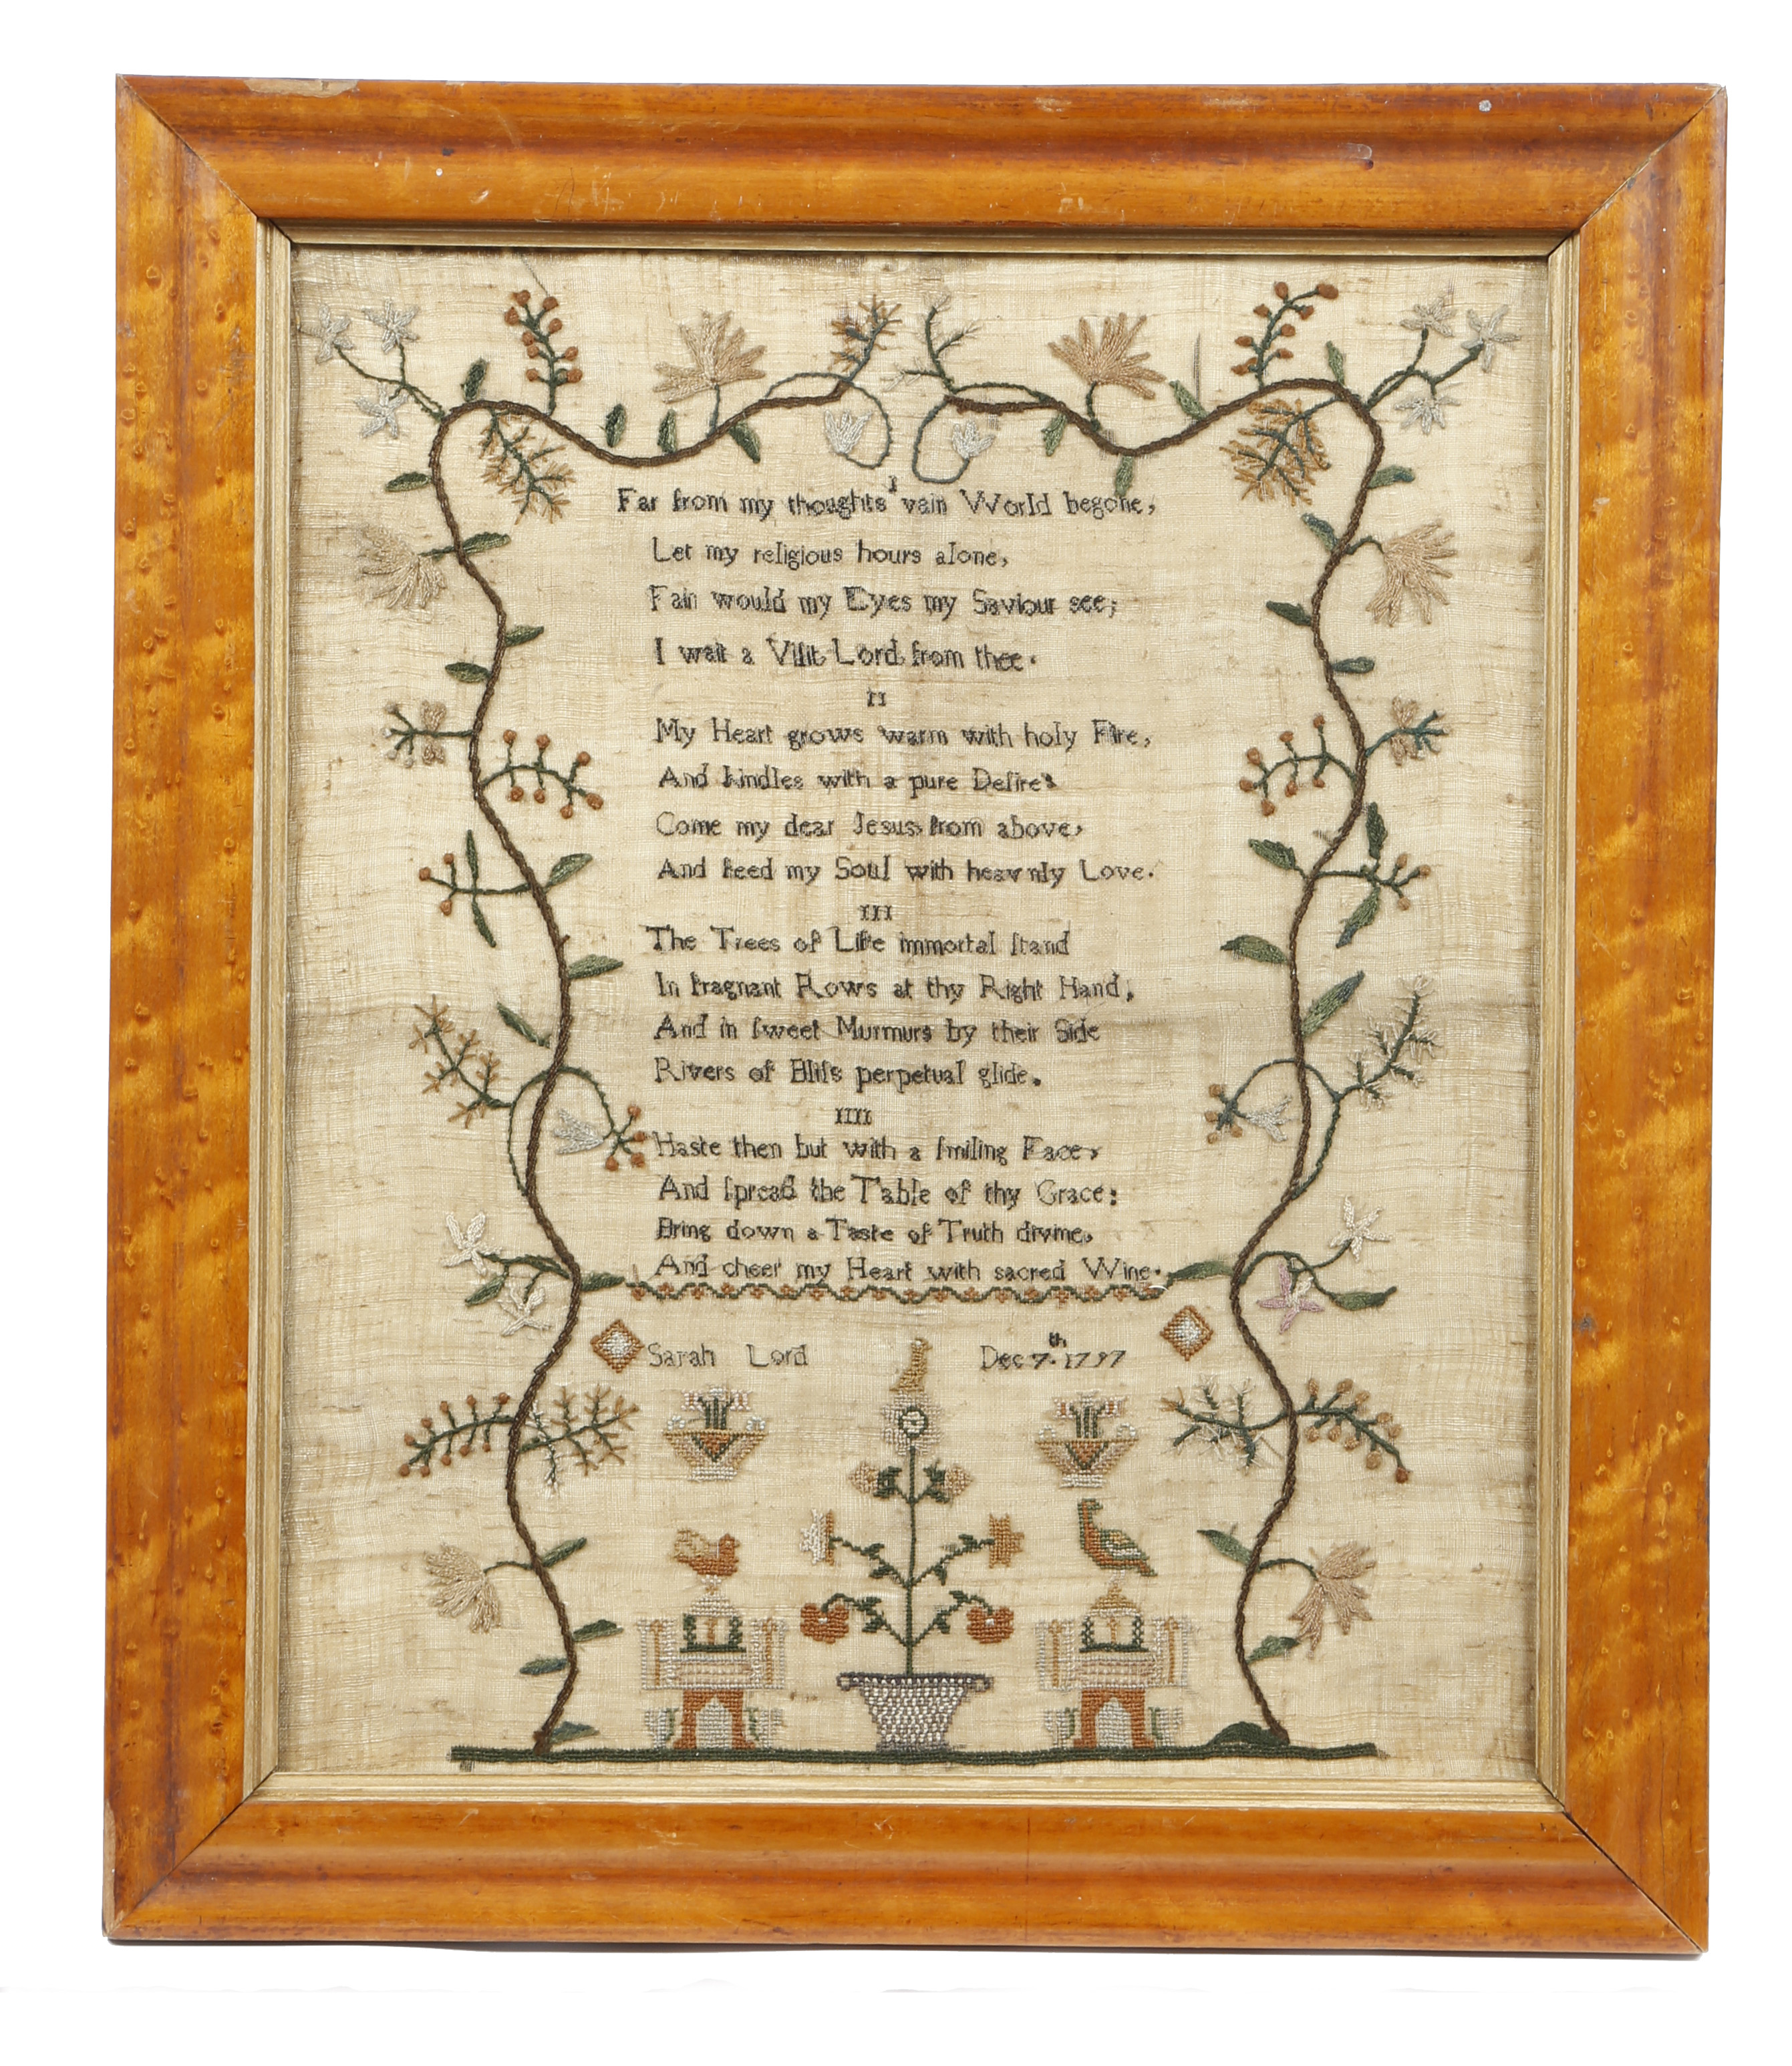 I
Far from my thoughts vain World begone,
Let my religious hours alone,
Fain would my Eyes my Saviour see;
I wait a Viſit Lord from thee.
II
My Heart grows warm with holy Fire,
And kindles with a pure Deſire:
Come my dear Jesus from above,
And feed my Soul with heavnly Love.
III
The Trees of Life immortal ſtand
In fragnant Rows at thy Right Hand,
And in ſweet Murmurs by their Side
Rivers of Bliſs perpetual glide.
IIII
Haste then but with a ſmiling Face,
And ſpread the Table of thy Grace:
Bring down a Taste of Truth divine,
And cheer my Heart with sacred Wine.
Sarah Lord Dec 7th. 1797